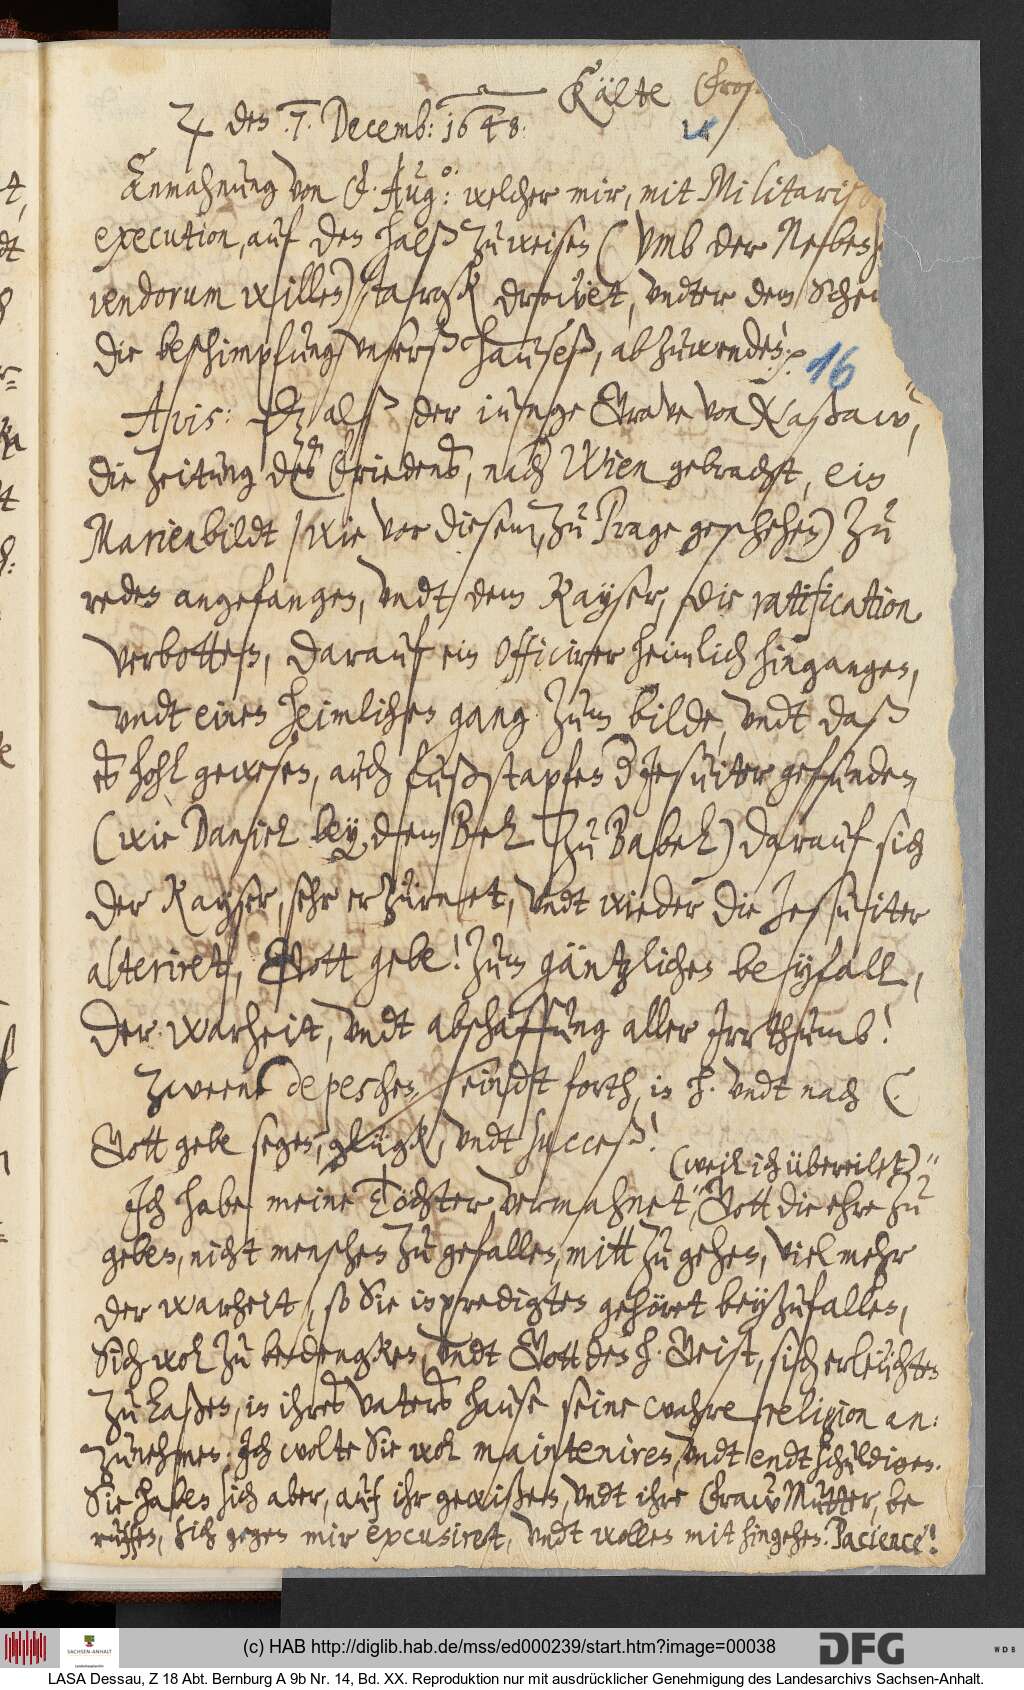 Kälte Fros
♃ den .7. Decemb: 1648.
14
Anmahnung von F. Aug:o: welcher mir, mit Militarisch
execution, auf den halß zuweisen (umb der Neben
rendorum willen) starck drowet, undter dem Schein
die beschimpfung, unserß Hauseß, abzuwenden: 16
Avis: daß alß der iunge Grave von Naßaw,
die zeitung des Friedens, nach Wien gebracht, ein
Marienbildt (wie vor diesem, zu Prage geschehen) zu
reden angefangen, undt dem Kayser, die ratification
verbotten, darauf ein Officirer heimlich hingangen,
undt einen heimlichen gang zum bilde, undt daß
es hohl gewesen, auch fußstapfen d Jesuiter gefunden
(wie Daniel bey dem Bel zu Babel) darauf sich
der Kayser, sehr erzürnet, undt wieder die Jesuiter
alteriret, Gott gebe! zum gäntzlichen beyfall,
der warheit, undt abschaffung aller Irrthumb!
Zweene depeschen, seindt forth, in H. undt nach C.
Gott gebe segen, glügk, undt succeß!
(weil ich übereilet)"
Ich habe meine Töchter vermahnet," Gott die ehre zu
geben, nicht menschen zu gefallen, mitt zu gehen, viel mehr
der warheit, so Sie in predigten gehöret beyzufallen,
Sich wol zu bedengken, undt Gott den h. Geist, sich erleüchten
zu laßen, in ihres vaters hause seine wahre religion an:
zunehmen. Ich wolte Sie wol mainteniren, undt endtschuldigen.
Sie haben sich aber, auf ihr gewißen, undt ihre Fraw Mutter, be
ruffen, sich gegen mir excusiret, undt wollen mit hingehen. Pacience!
(c) HAB http://diglib.hab.de/mss/ed000239/start.htm?image=00038
SACHSEN-ANHALT
DFG
WDB
LASA Dessau, Z 18 Abt. Bernburg A 9b Nr. 14, Bd. XX. Reproduktion nur mit ausdrücklicher Genehmigung des Landesarchivs Sachsen-Anhalt.